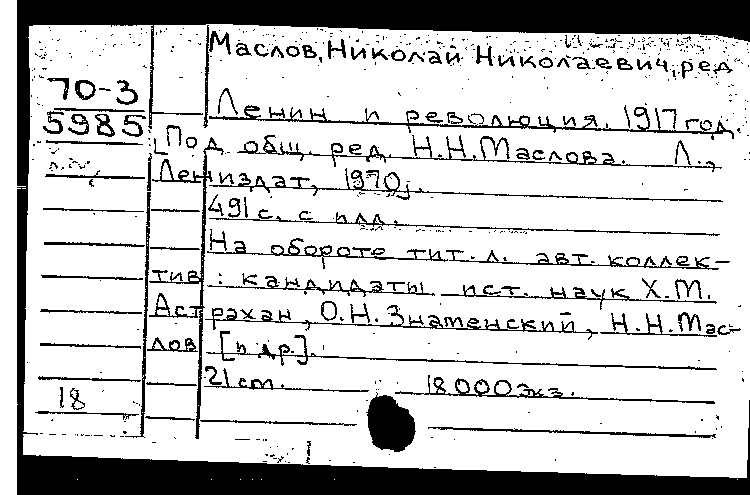 Маслов, Николай Николаевич, ред
70-3
5985
Ленин и революция. 1917 год.
[Под общ. ред. Н.Н.Маслова. Л.,
Лениздат, 1970].
491 с. с илл.
На обороте тит. л. авт. коллек-
тив: кандидаты ист. наук Х.М.
Астрахан, О.Н. Знаменский, Н.Н.Мас-
лов [и др].
21 cm. 18000 экз.
18